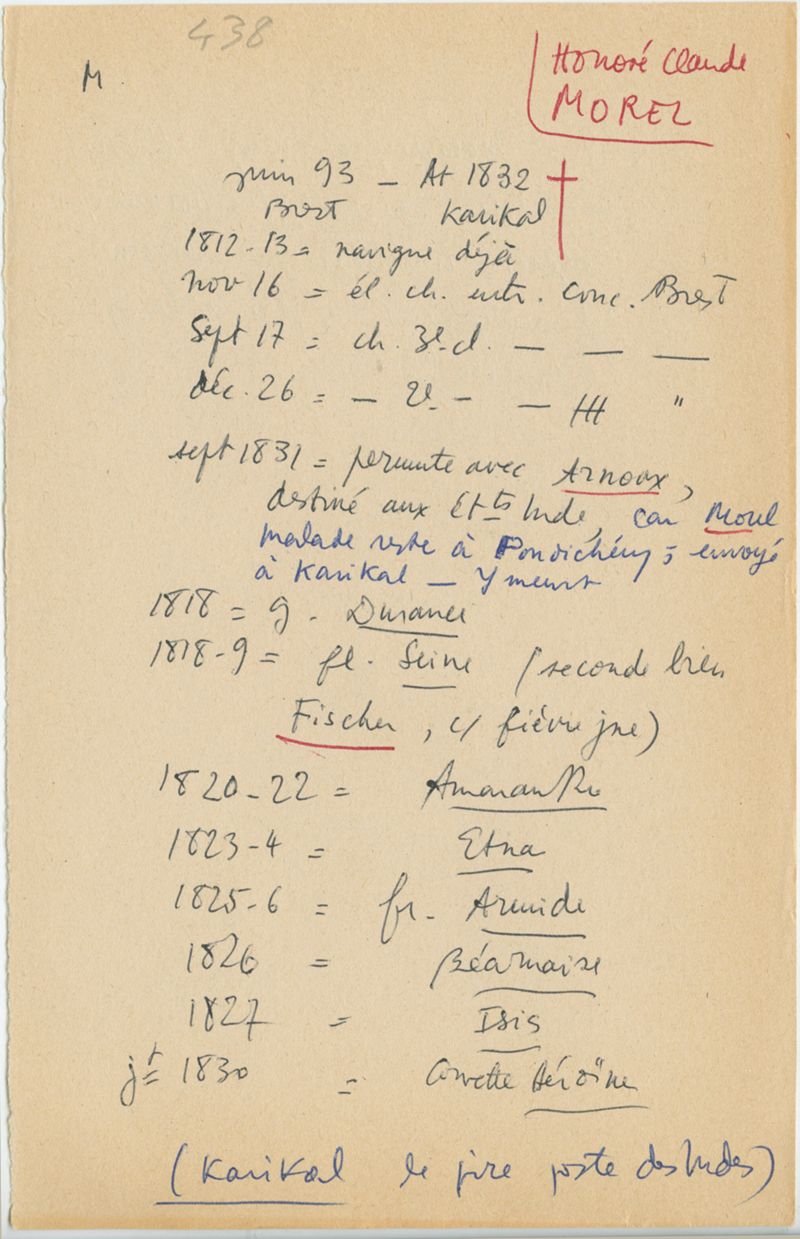 438
M.
Honoré Claude
MOREL
juin 93 – At 1832 †
Brest Karikal
1812-13 = navigue déjà
nov 16 = él. ch. entr. conc. Brest
Sept 17 = ch. 3e cl. — — —
déc. 26 = — 2e — — "
sept 1831 = permute avec Arnoux,
destiné aux Etts Inde, car Morel
malade reste à Pondichéry ; envoyé
à Karikal – Y meurt
1818 = g. Durance
1818-9 = fl. Seine (seconde bien
Fischer, c/ fièvre jne)
1820-22 = Amaranthe
1823-4 = Etna
1825-6 = fr. Armide
1826 = Béarnaise
1827 = Isis
jt 1830 = Corvette Héroïne
(Karikal le pire poste des Indes)